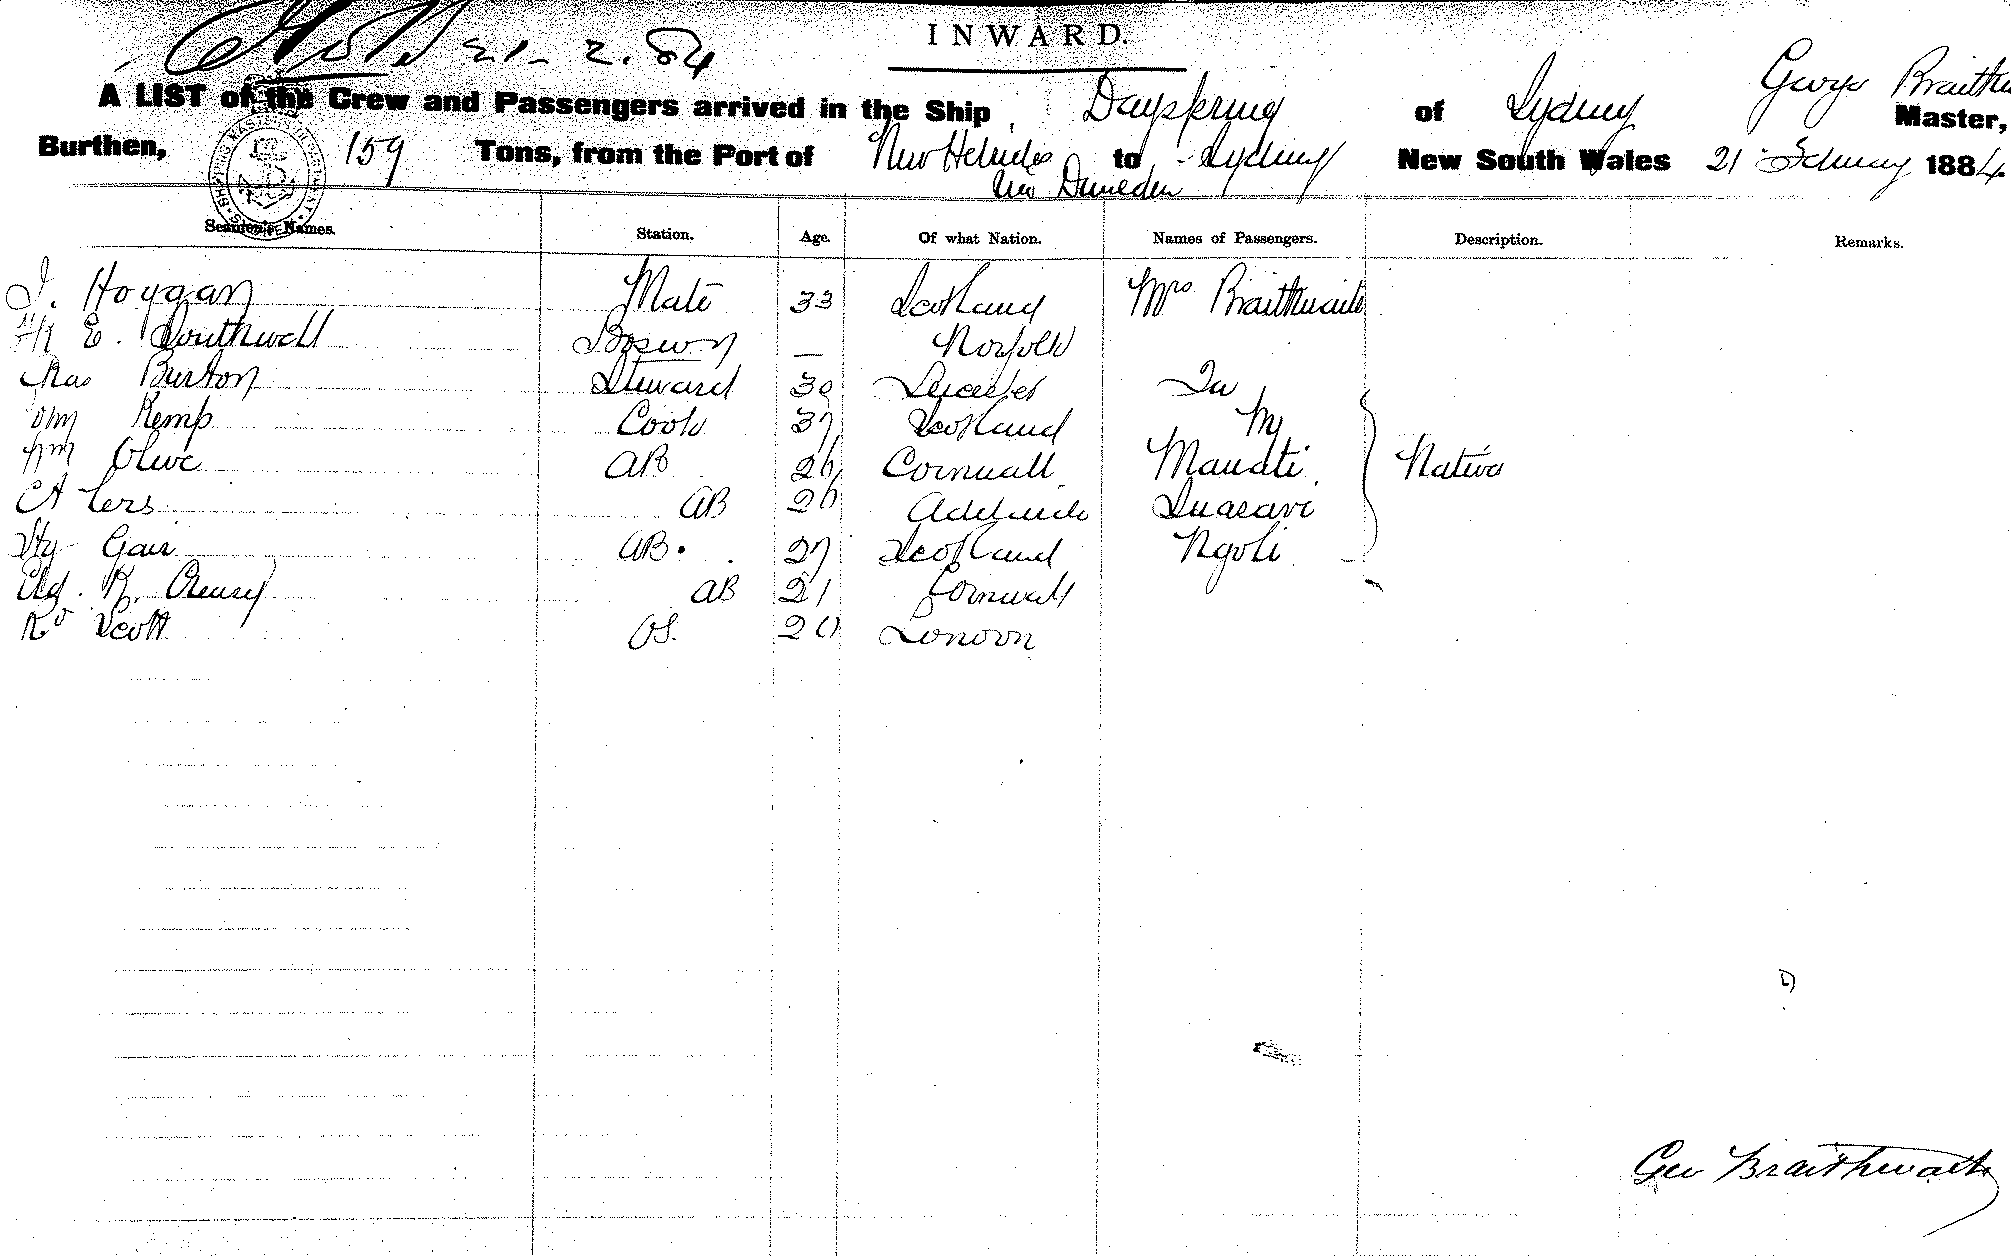 21. 2. 84
INWARD.
George
A LIST of the Crew and Passengers arrived in the Ship Dayspring of Sydney Master,
Burthen, 159 Tons, from the Port of New Hebrides to Sydney New South Wales 21 1884.
Dunedin
Seamen's Names. Station. Age. Of what Nation. Names of Passengers. Description. Remarks.
J. Hoggan Mate 33 Scotland Mrs Braithwaite
E. Southwell Boswn — Norfolk
Chas Burton Steward 30 Leicester
Kemp Cook 37 Scotland
Olive AB 26 Cornwall Native
AB 26 Adelaide
Gair AB. 27 Scotland Ngoli
R. AB 21 Cornwall
Rd Scott OS. 20 London
Geo Braithwaite